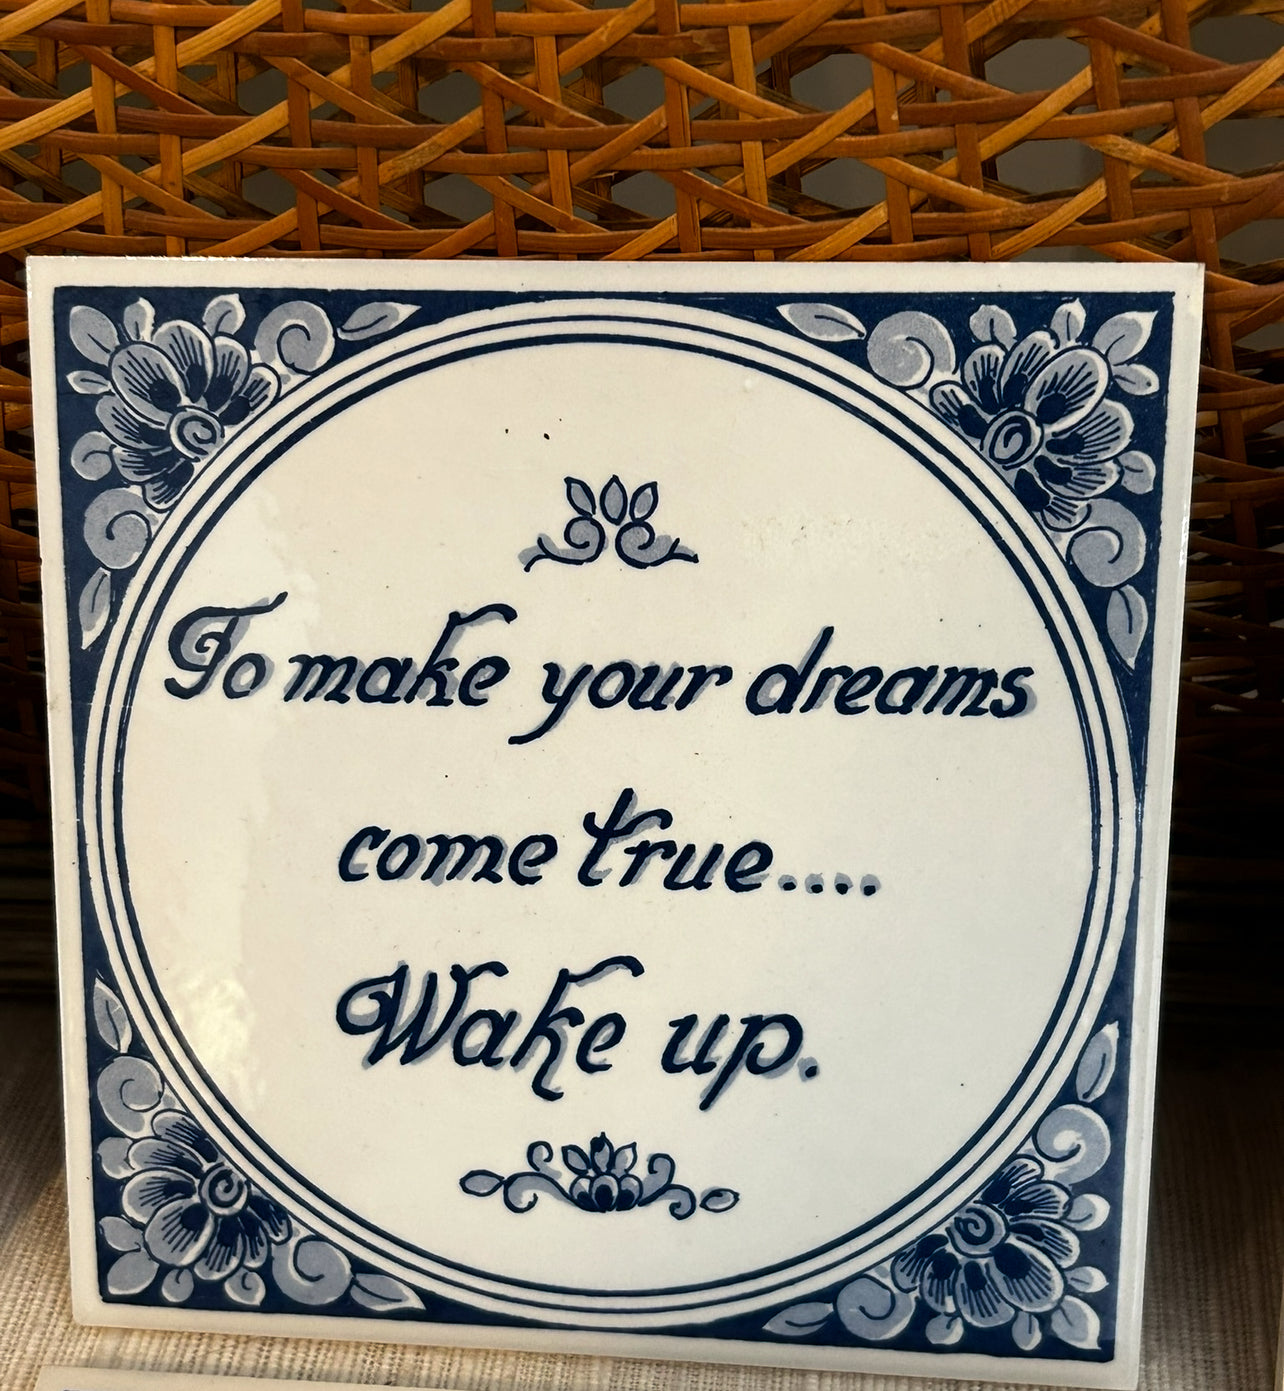 To make your dreams
come true....
Wake up.